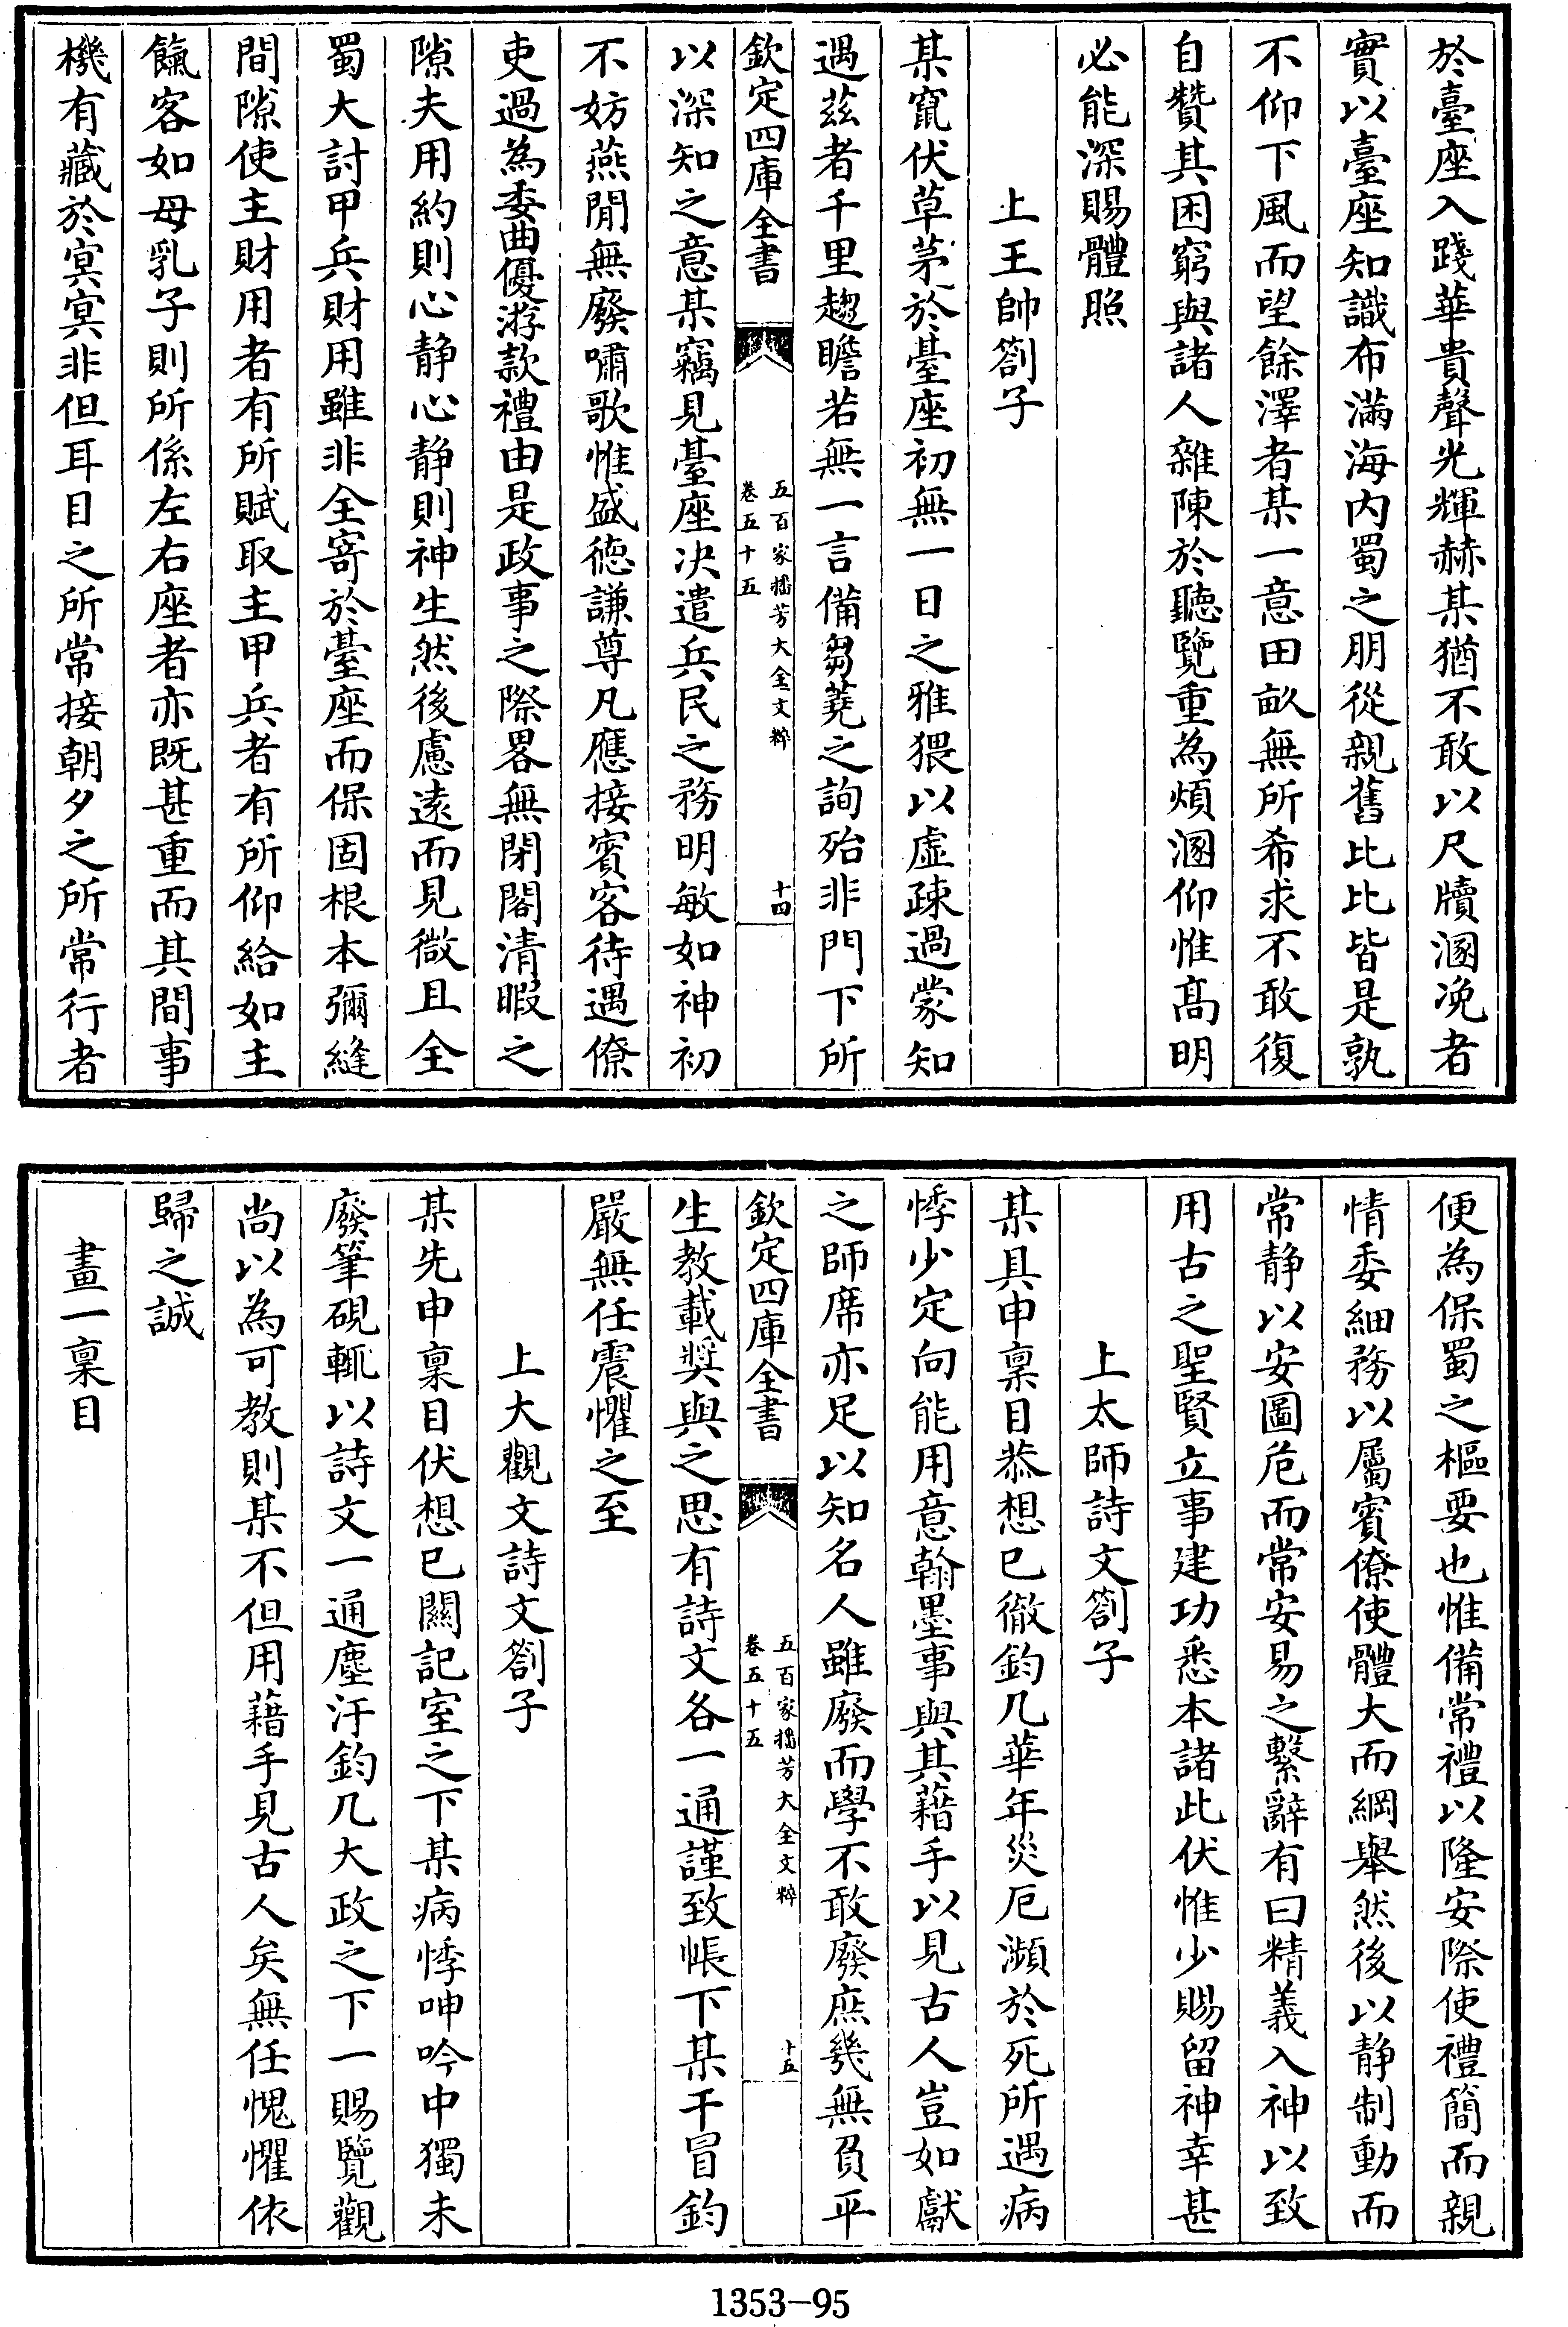 於臺座入踐華貴聲光輝赫某猶不敢以尺牘溷凂者
實以臺座知識布滿海内蜀之朋從親舊比比皆是孰
不仰下風而望餘澤者某一意田畝無所希求不敢復
自贊其困窮與諸人雜陳於聽覽重為煩溷仰惟髙明
必能深賜體照
上王帥劄子
某竄伏草茅於臺座初無一日之雅猥以虛疎過蒙知
遇茲者千里趨瞻若無一言備芻蕘之詢殆非門下所
欽定四庫全書
五百家播芳大全文粹
卷五十五
十四
以深知之意某竊見臺座决遣兵民之務明敏如神初
不妨燕閒無廢嘯歌惟盛徳謙尊凡應接賓客待遇僚
吏過為委曲優游款禮由是政事之際畧無閉閤清暇之
隙夫用約則心静心静則神生然後慮遠而見微且全
蜀大討甲兵財用雖非全寄於臺座而保固根本彌縫
間隙使主財用者有所賦取主甲兵者有所仰給如主
饎客如母乳子則所係左右座者亦既甚重而其間事
機有藏於冥冥非但耳目之所常接朝夕之所常行者
便為保蜀之樞要也惟備常禮以隆安際使禮簡而親
情委細務以屬賓僚使體大而綱舉然後以静制動而
常静以安圖危而常安易之繫辭有曰精義入神以致
用古之聖賢立事建功悉本諸此伏惟少賜留神幸甚
上太師詩文劄子
某具申稟目恭想已徹鈞几華年災厄瀕於死所遇病
悸少定向能用意翰墨事與其藉手以見古人豈如獻
之師席亦足以知名人雖廢而學不敢廢庶幾無負平
欽定四庫全書
五百家播芳大全文粹
卷五十五
十五
生教載奬與之思有詩文各一通謹致帳下某干冒鈞
嚴無任震懼之至
上大觀文詩文劄子
某先申稟目伏想已關記室之下某病悸呻吟中獨未
廢筆硯輒以詩文一通塵汙鈞几大政之下一賜覽觀
尚以為可教則某不但用藉手見古人矣無任愧懼依
歸之誠
畫一稟目
1353-95